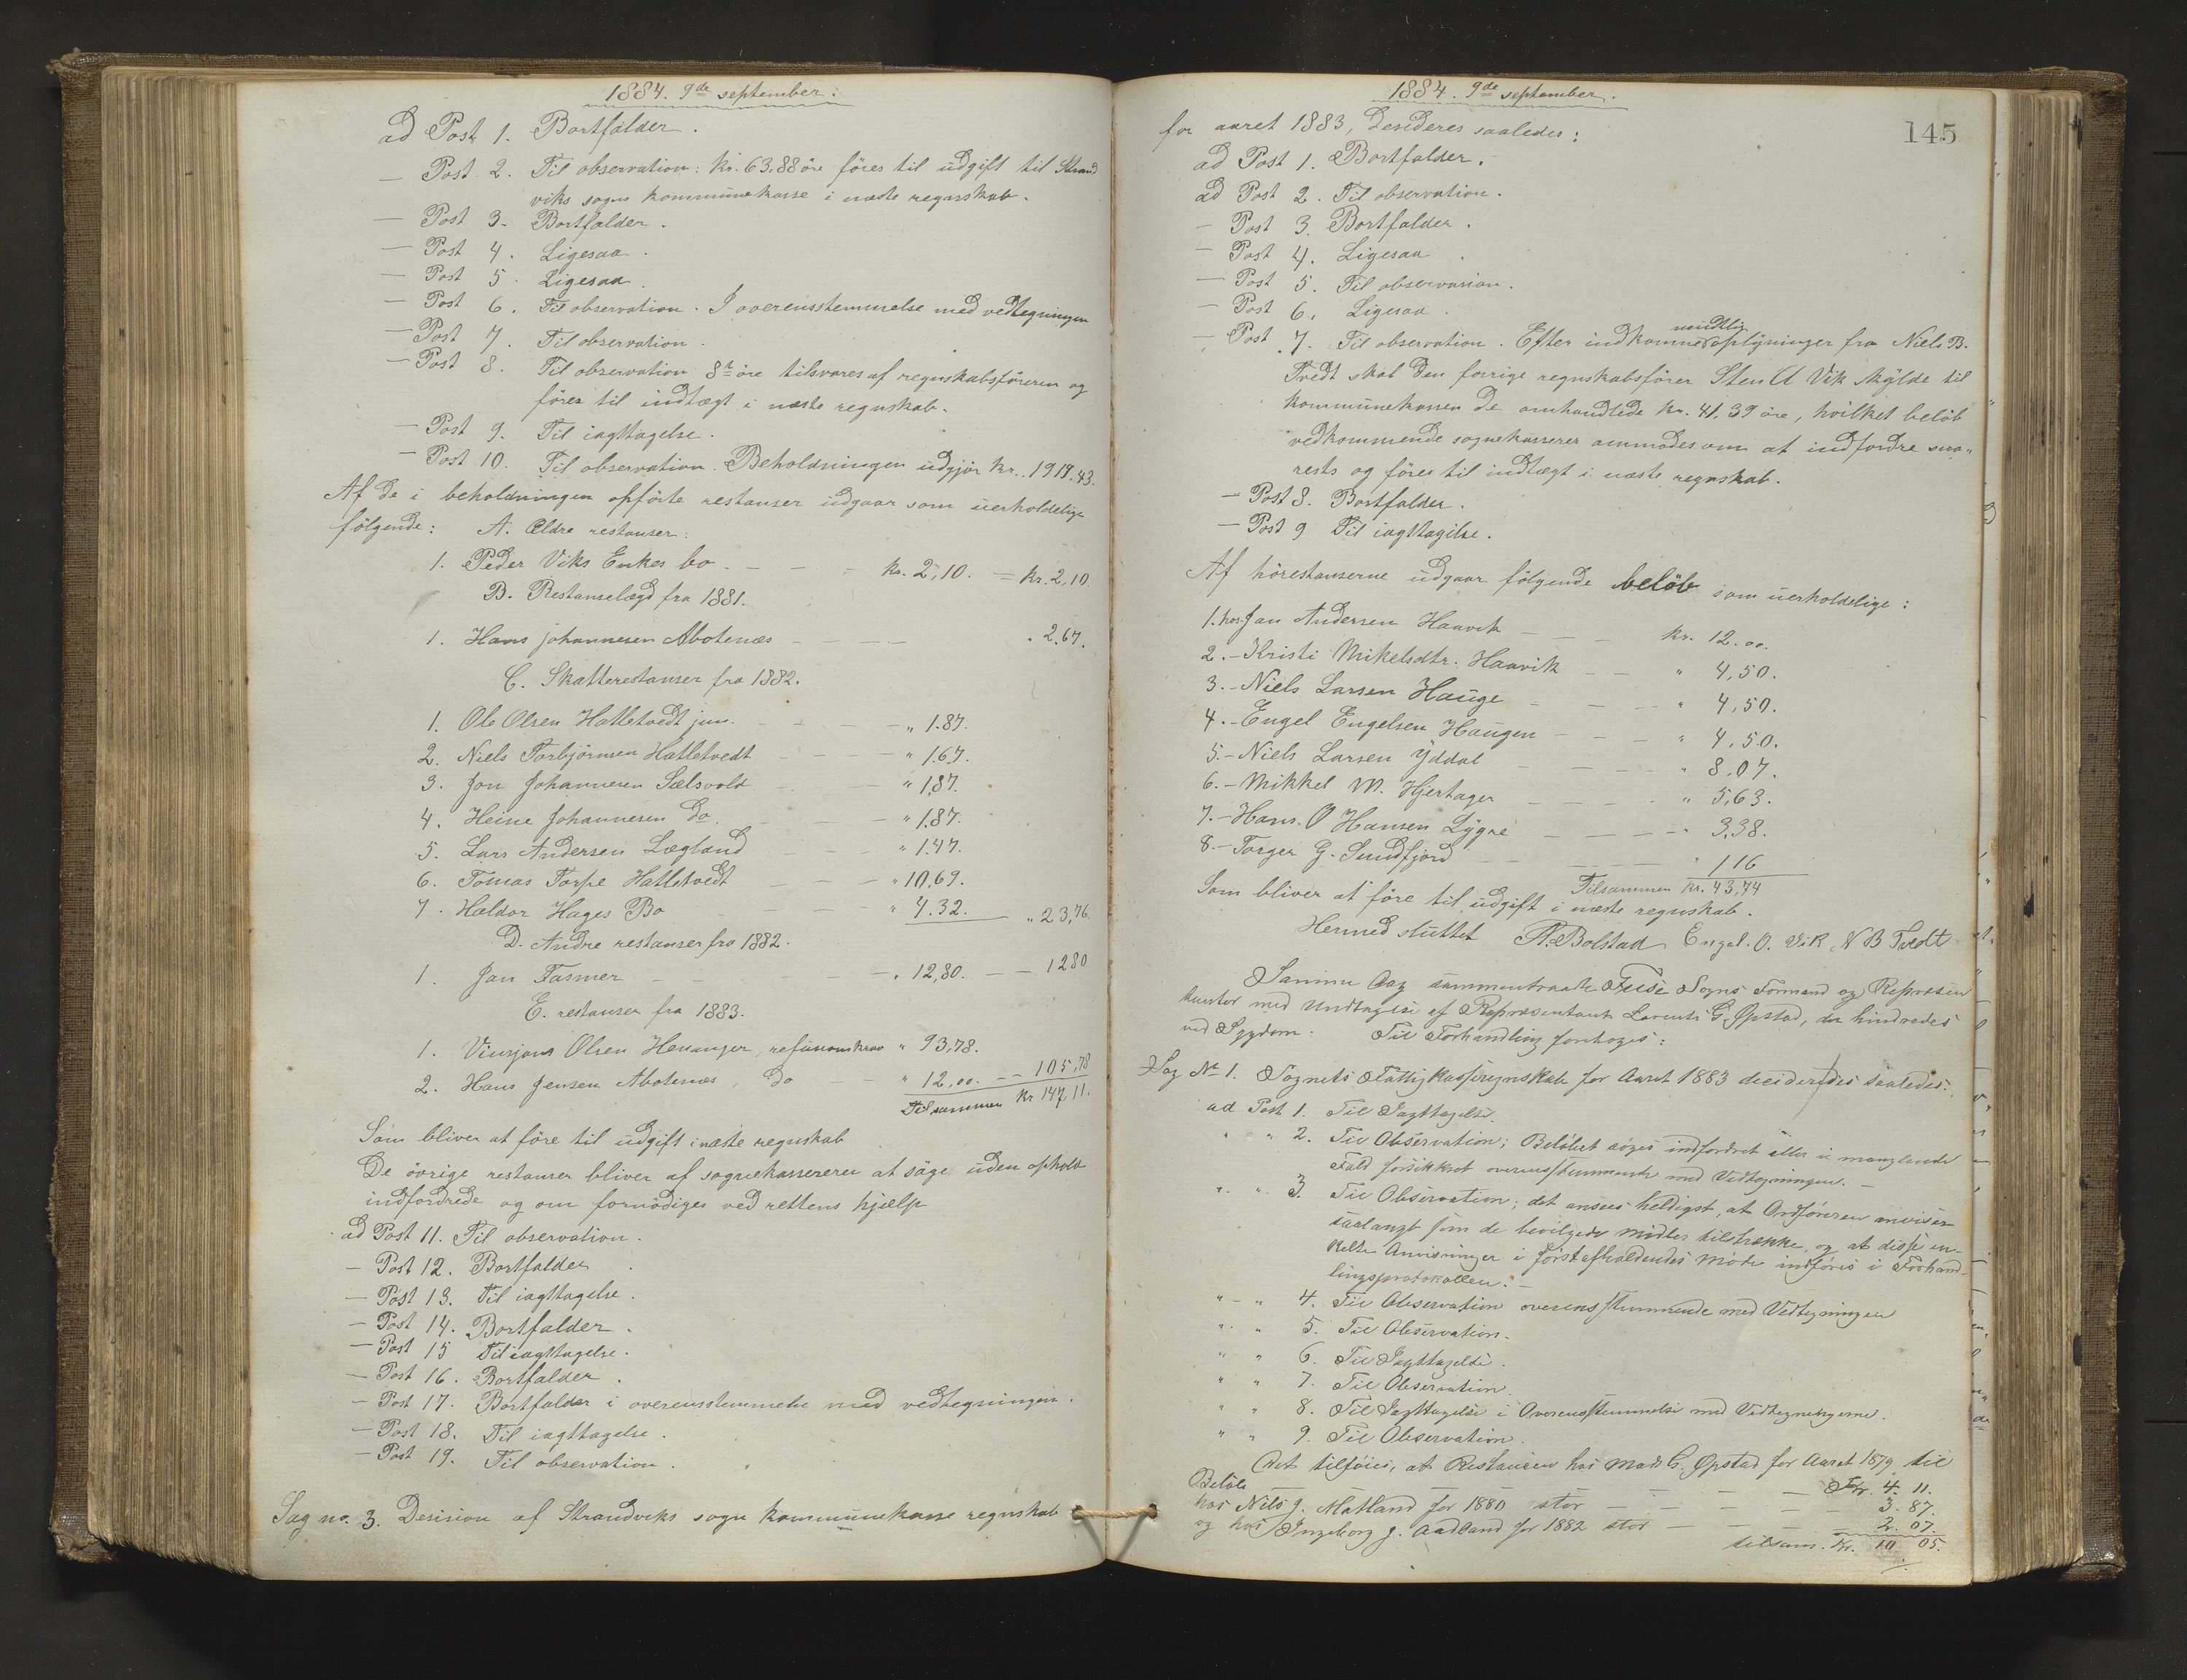 1884. 9de september.
ad Post 1. Bortfalder.
— Post 2. Til observation: kr. 63,88 öre föres til udgift til Strand
viks sogns kommunekasse i næste regnskab.
— Post 3. Bortfalder.
— Post 4. Ligesaa.
— Post 5. Ligesaa.
— Post 6. Til observation. I overensstemmelse med vedtegningen
— Post 7. Til observation.
— Post 8. Til observation 8 öre tilsvares af regnskabsföreren og
föres til indtægt i næste regnskab.
— Post 9. Til iagttagelse.
— Post 10. Til observation. Beholdningen udgjör kr. 1919.43.
Af de i beholdningen opförte restanser udgaar som uerholdelige
følgende: A. Ældre restanser:
1. Peder Viks Enkes bo — — kr. 2,10. = kr. 2,10.
B. Restanselægd fra 1881.
1. Hans Johannesen Abotenæs — — — „ 2.67.
C. Skatterestanser fra 1882.
1. Ole Olsen Hatletvedt jun. — — „ 1.87.
2. Niels Torbjörnsen Hatletvedt — — „ 1.67.
3. Jon Johannesen Sælsvold — — „ 1,87.
4. Heine Johannesen Do. — — „ 1.87.
5. Lars Andersen Lægland — — „ 1.47.
6. Tomas Torpe Hatletvedt — — „ 10,69.
7. Haldor Hages Bo — — „ 4.32. „ 23,76.
D. Andre restanser fra 1882.
1. Jan Fasmer — — — „ 12,80. — — 1280
E. restanser fra 1883.
1. Olsen Henanger, refusionskrav „ 93,78.
2. Hans Jensen Abotenæs do — „ 12,00. — — 105,78
Tilsammen kr 147,11.
Som bliver at före til udgift i næste regnskab
De övrige restanser bliver af sognekassereren at söge uden ophold
indfordrede og om fornödiges ved rettens hjælp
ad Post 11. Til observation.
— Post 12. Bortfalder.
— Post 13. Til iagttagelse.
— Post 14. Bortfalder.
— Post 15 Til iagttagelse.
— Post 16. Bortfalder.
— Post 17. Bortfalder i overensstemmelse med vedtegningen.
— Post 18. Til iagttagelse.
— Post 19. Til observation.
Sag no. 3. Desision af Strandviks sogns kommunekasse regnskab
1884. 9de september.
145
for aaret 1883, Desideres saaledes:
ad Post 1. Bortfalder.
ad Post 2. Til observation.
— Post 3. Bortfalder.
— Post 4. Ligesaa.
— Post 5. Til observasion.
— Post 6. Ligesaa.
mundtlig
— Post 7. Til observation. Efter indkomne oplysninger fra Niels B.
Tvedt skal den forrige regnskabsförer Sten A Vik skylde til
kommunekassen de omhandlede kr. 41.39 öre, hvilket belöb
vedkommende sognekasserer anmodes om at indfordre sna„
rests og föres til indtægt i næste regnskab.
— Post 8. Bortfalder.
— Post 9 Til iagttagelse.
Af hörestanserne udgaar følgende belöb som uerholdelige:
1. hos Jan Andersen Haavik — — kr. 12.00.
2. — Kristi Mikelsdtr. Haavik — — „ 4,50.
3. — Niels Larsen Hauge — — „ 4,50.
4. — Engel Engelsen Haugen — — „ 4,50.
5. — Niels Larsen Yddal — — „ 8,07.
6. — Mikkel M. Hjertager — — „ 5,63.
7. — Hans O Hansen Lygre — — „ 3,38.
8. — Torger G. Sundfjord — — „ 116
Tilsammen kr. 43,74
Som bliver at före til udgift i næste regnskab.
Hermed sluttet A. Bolstad Engel. O. Vik N B Tvedt
Samme Dag sammentraadte Fuse Sogns Formænd og Repræsen
tanter med Undtagelse af Repræsentant Lorents G. Øpstad, der hindredes
ved Sygdom. Til Forhandling foretoges:
Sag No 1. Sognets Fattigkasseregnskab for Aaret 1883 desideredes saaledes:
ad Post 1. Til Iagttagelse.
„ „ 2. Til Observation; Beløbet søges indfordret eller i manglende
Fald forsikkret overensstemmende med Vedtegningen. —
„ „ 3. Til Observation; det ansees heldigst, at Ordføreren anviser
saalangt som de bevilgede Midler tilstrække, og at disse en-
kelte Anvisninger i først afholdendes Møde indføres i Forhand-
lingsprotokollen. —
„ „ 4. Til Observation overensstemmende med Vedtegningen
„ „ 5. Til Observation.
„ „ 6. Til Iagttagelse.
„ „ 7. Til Observation.
„ „ 8. Til Iagttagelse i Overensstemmelse med Vedtegningerne.
„ „ 9. Til Observation.
Det tilføies, at Restansen hos Mads G. Øpstad for Aaret 1879 til
Beløb — — — — Kr. 4. 11.
hos Nils J. Matland for 1880 stor — — — 3. 87.
og hos Ingeborg J. Aadland for 1882 stor — — — 2. 07.
tilsam. Kr. 10 05.